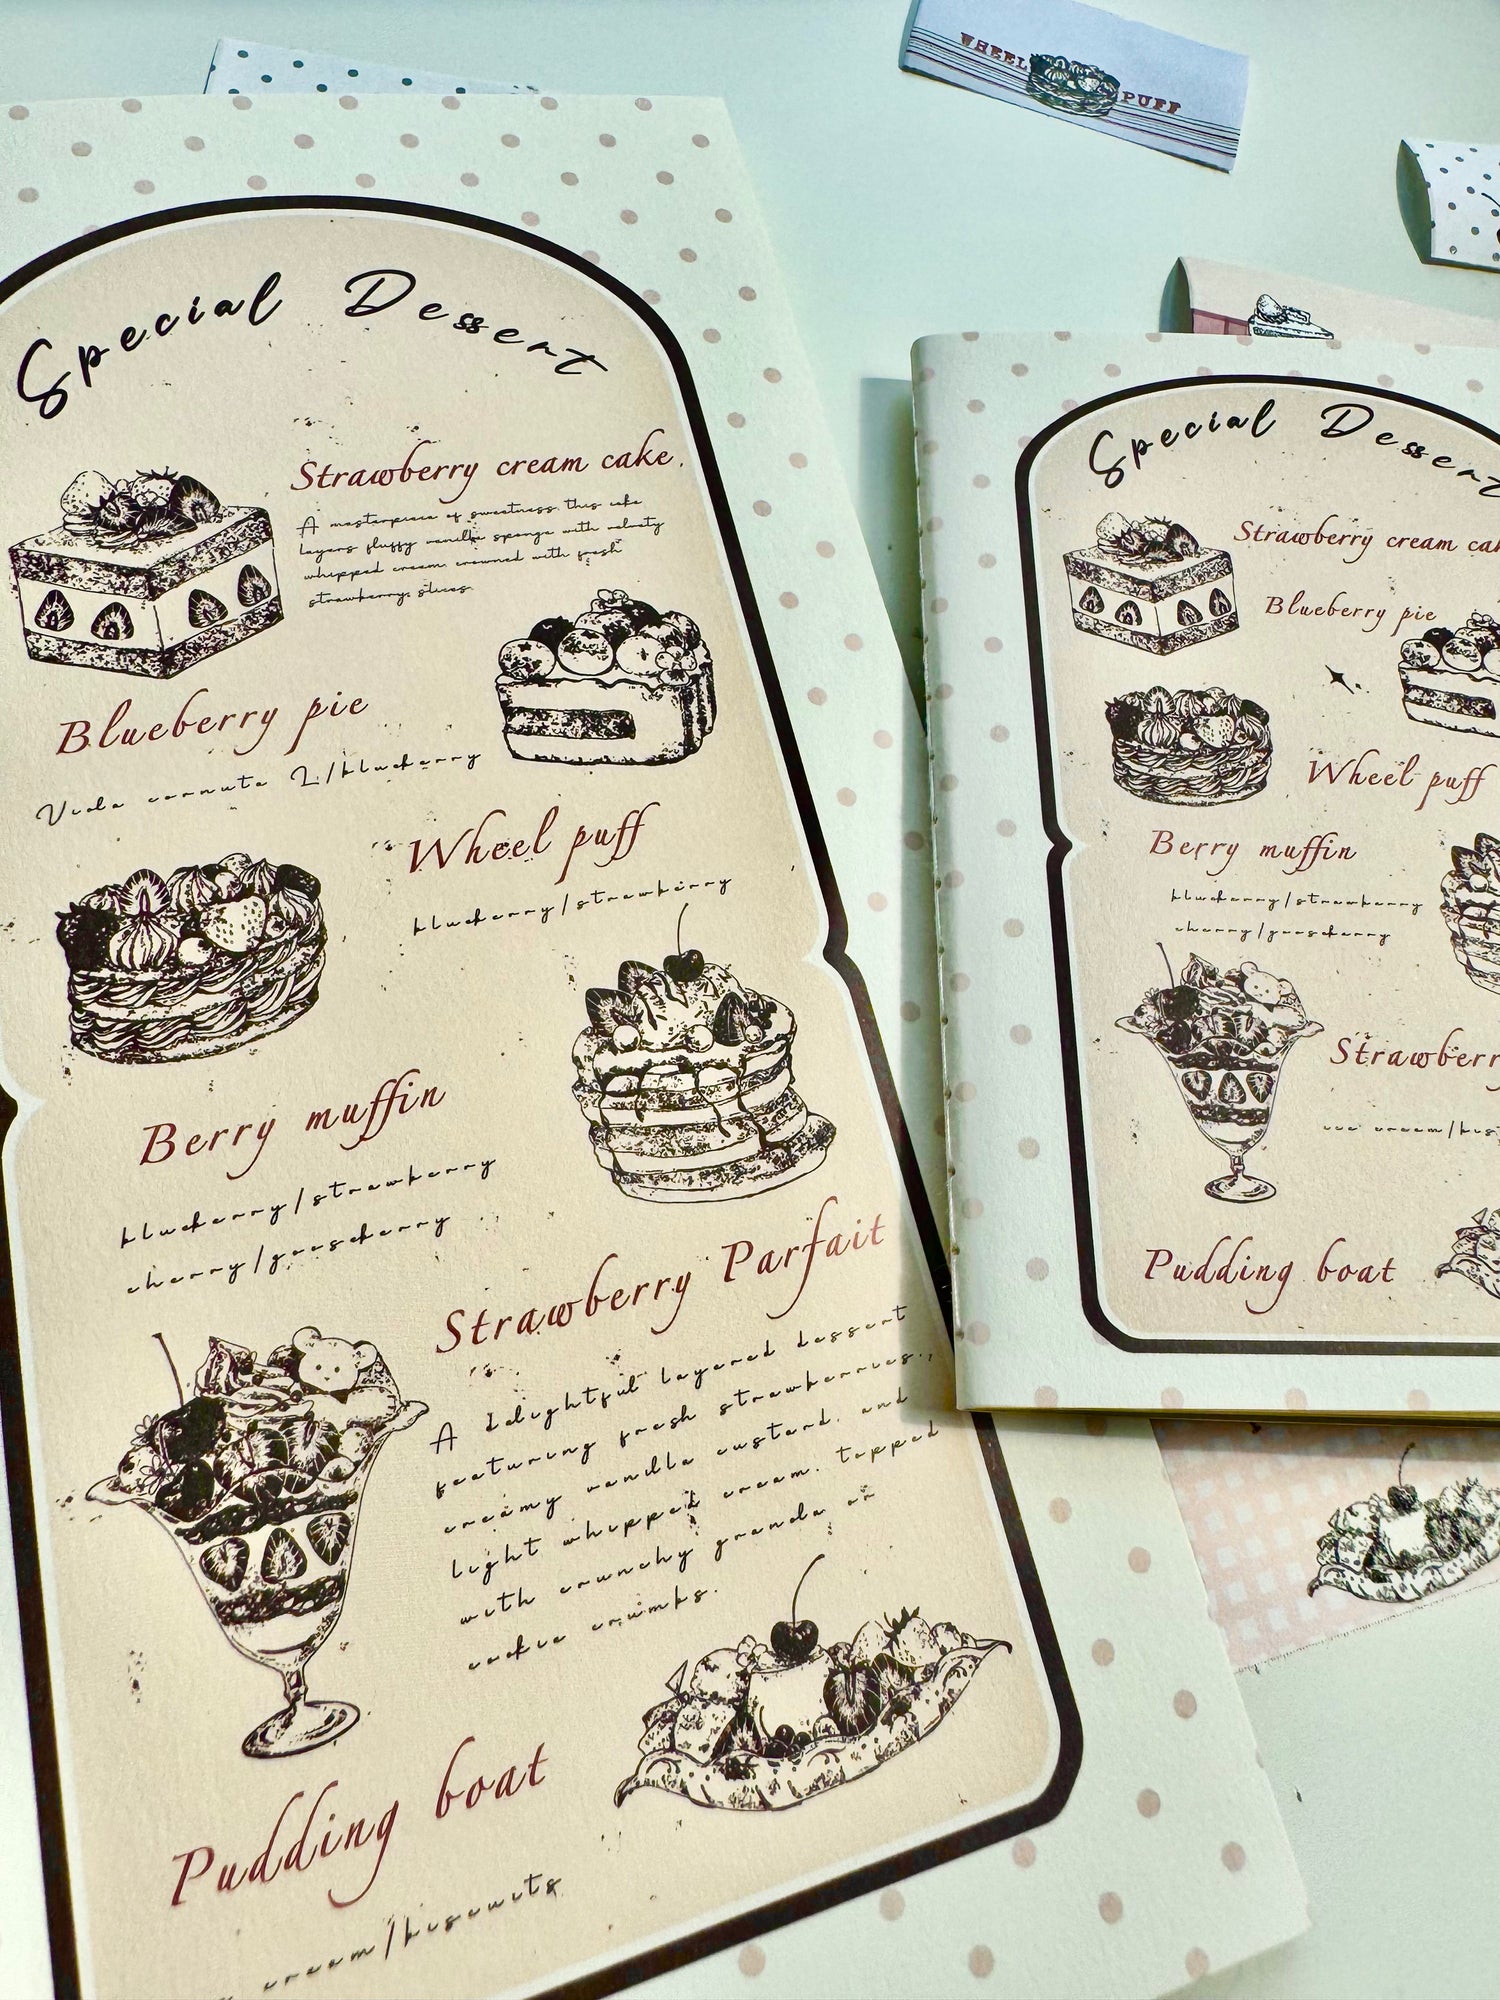 WHEEL PUFF
Special Dessert
Strawberry cream cake.
A masterpiece of sweetness, this cake
layers fluffy vanilla sponge with velvety
whipped cream crowned with fresh
strawberry slices.
Blueberry pie
Viola cornuta L/blueberry
Wheel puff
blueberry/strawberry
Berry muffin
blueberry/strawberry
cherry/gooseberry
Strawberry Parfait
A delightful layered dessert
featuring fresh strawberries.,
creamy vanilla custard, and
light whipped cream, topped
with crunchy granola or
cookie crumbs.
Pudding boat
cream/biscuits
Special Dessert
Strawberry cream
Blueberry pie
Wheel puff
Berry muffin
blueberry/strawberry
cherry/gooseberry
ice cream/
Pudding boat